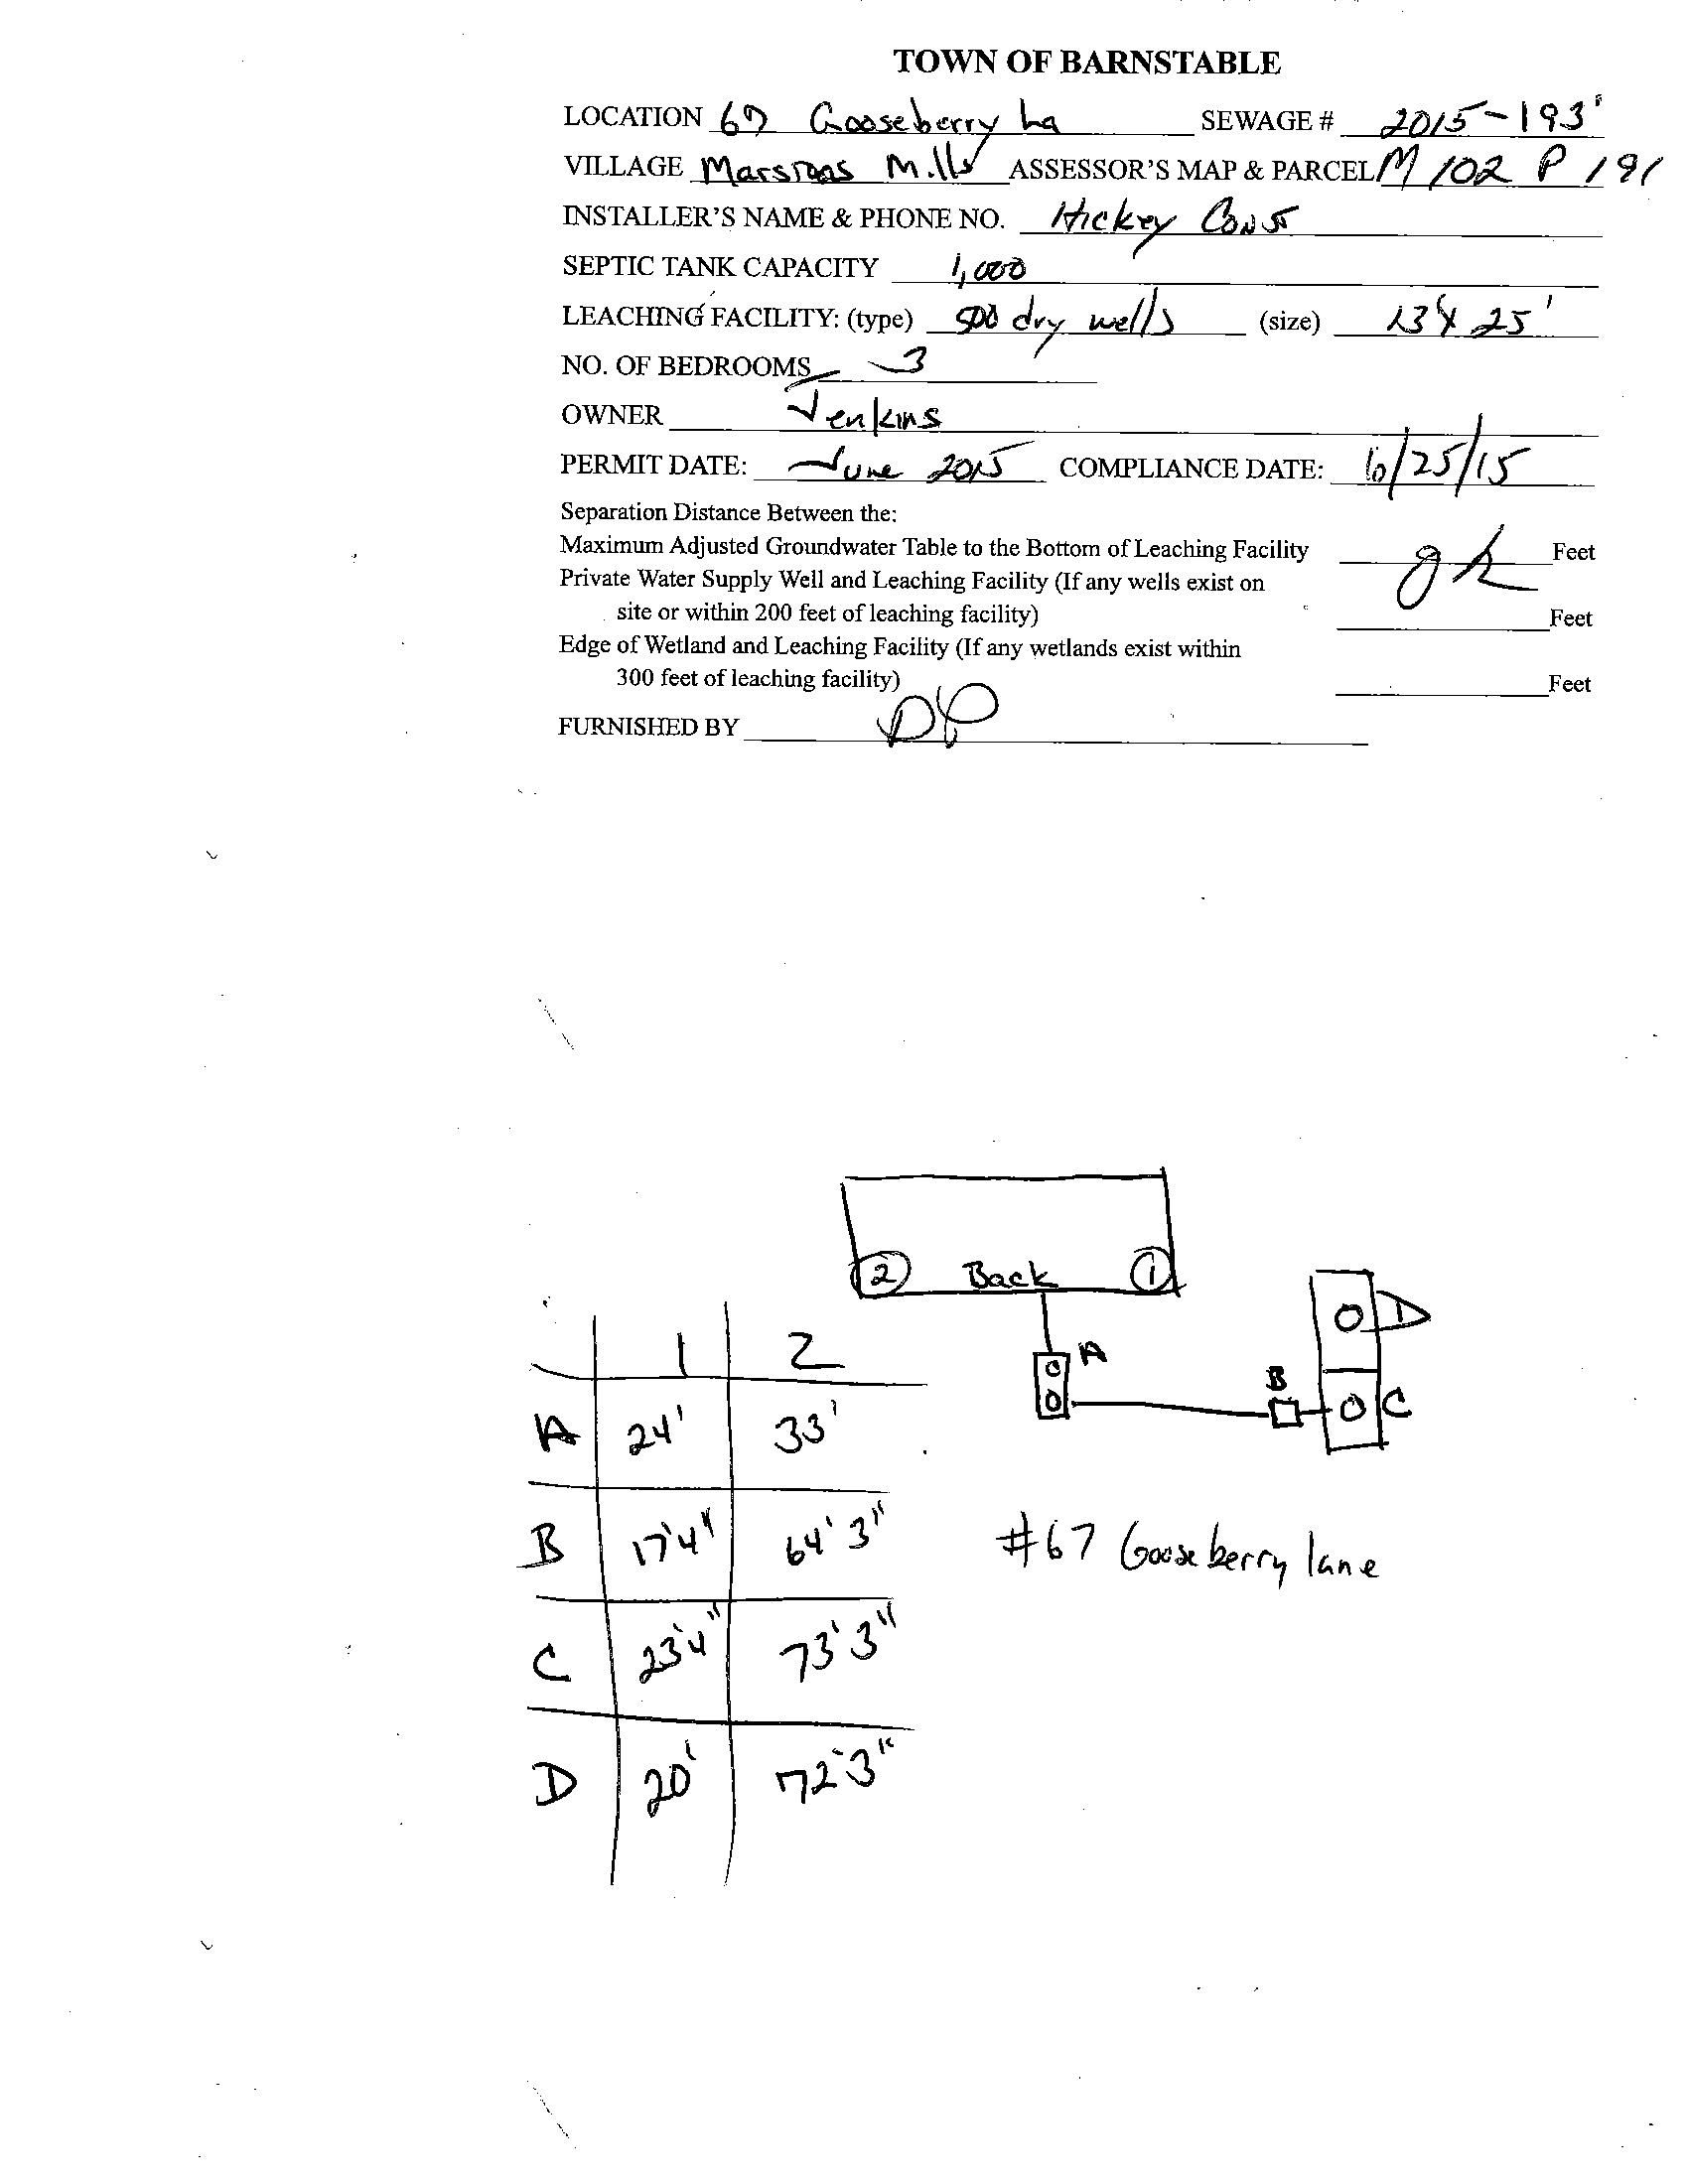 TOWN OF BARNSTABLE
LOCATION 67 Gooseberry Ln SEWAGE # 2015-193
VILLAGE Marstons Mills ASSESSOR'S MAP & PARCEL M 102 P 191
INSTALLER'S NAME & PHONE NO. Hickey Const
SEPTIC TANK CAPACITY 1,000
LEACHING FACILITY: (type) 500 dry wells (size) 13' x 25'
NO. OF BEDROOMS 3
OWNER Jenkins
PERMIT DATE: June 2015 COMPLIANCE DATE: 6/25/15
Separation Distance Between the:
Maximum Adjusted Groundwater Table to the Bottom of Leaching Facility Feet
Private Water Supply Well and Leaching Facility (If any wells exist on
site or within 200 feet of leaching facility) Feet
Edge of Wetland and Leaching Facility (If any wetlands exist within
300 feet of leaching facility) Feet
FURNISHED BY DP
2 Back 1
D
A
B
C
1 2
A 24' 33'
B 17'4" 64'3"
C 23'4" 73'3"
D 20' 72'3"
#67 Gooseberry lane